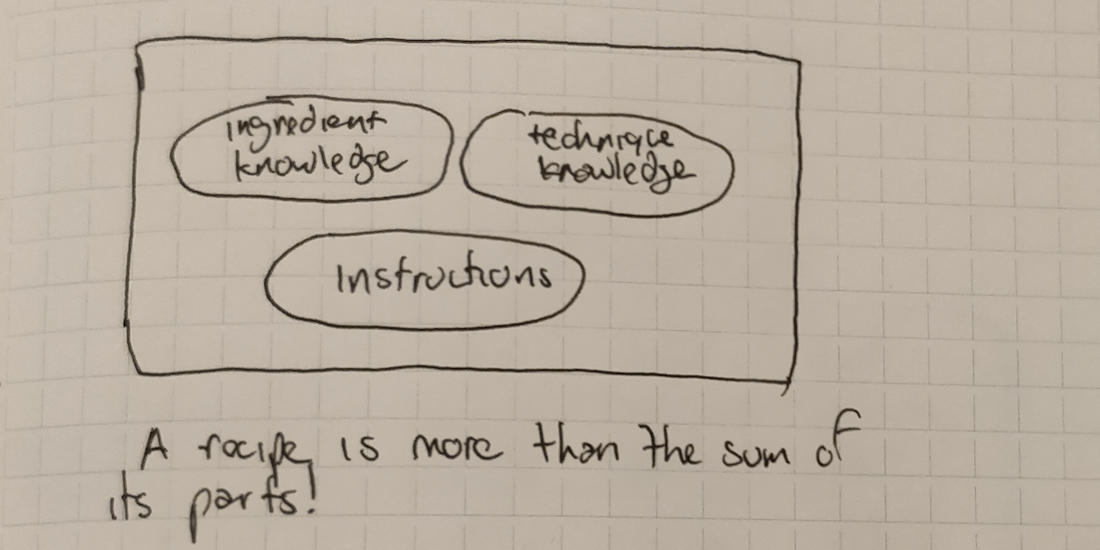 ingredient
knowledge
technique
knowledge
Instructions
A recipe is more than the sum of
its parts!